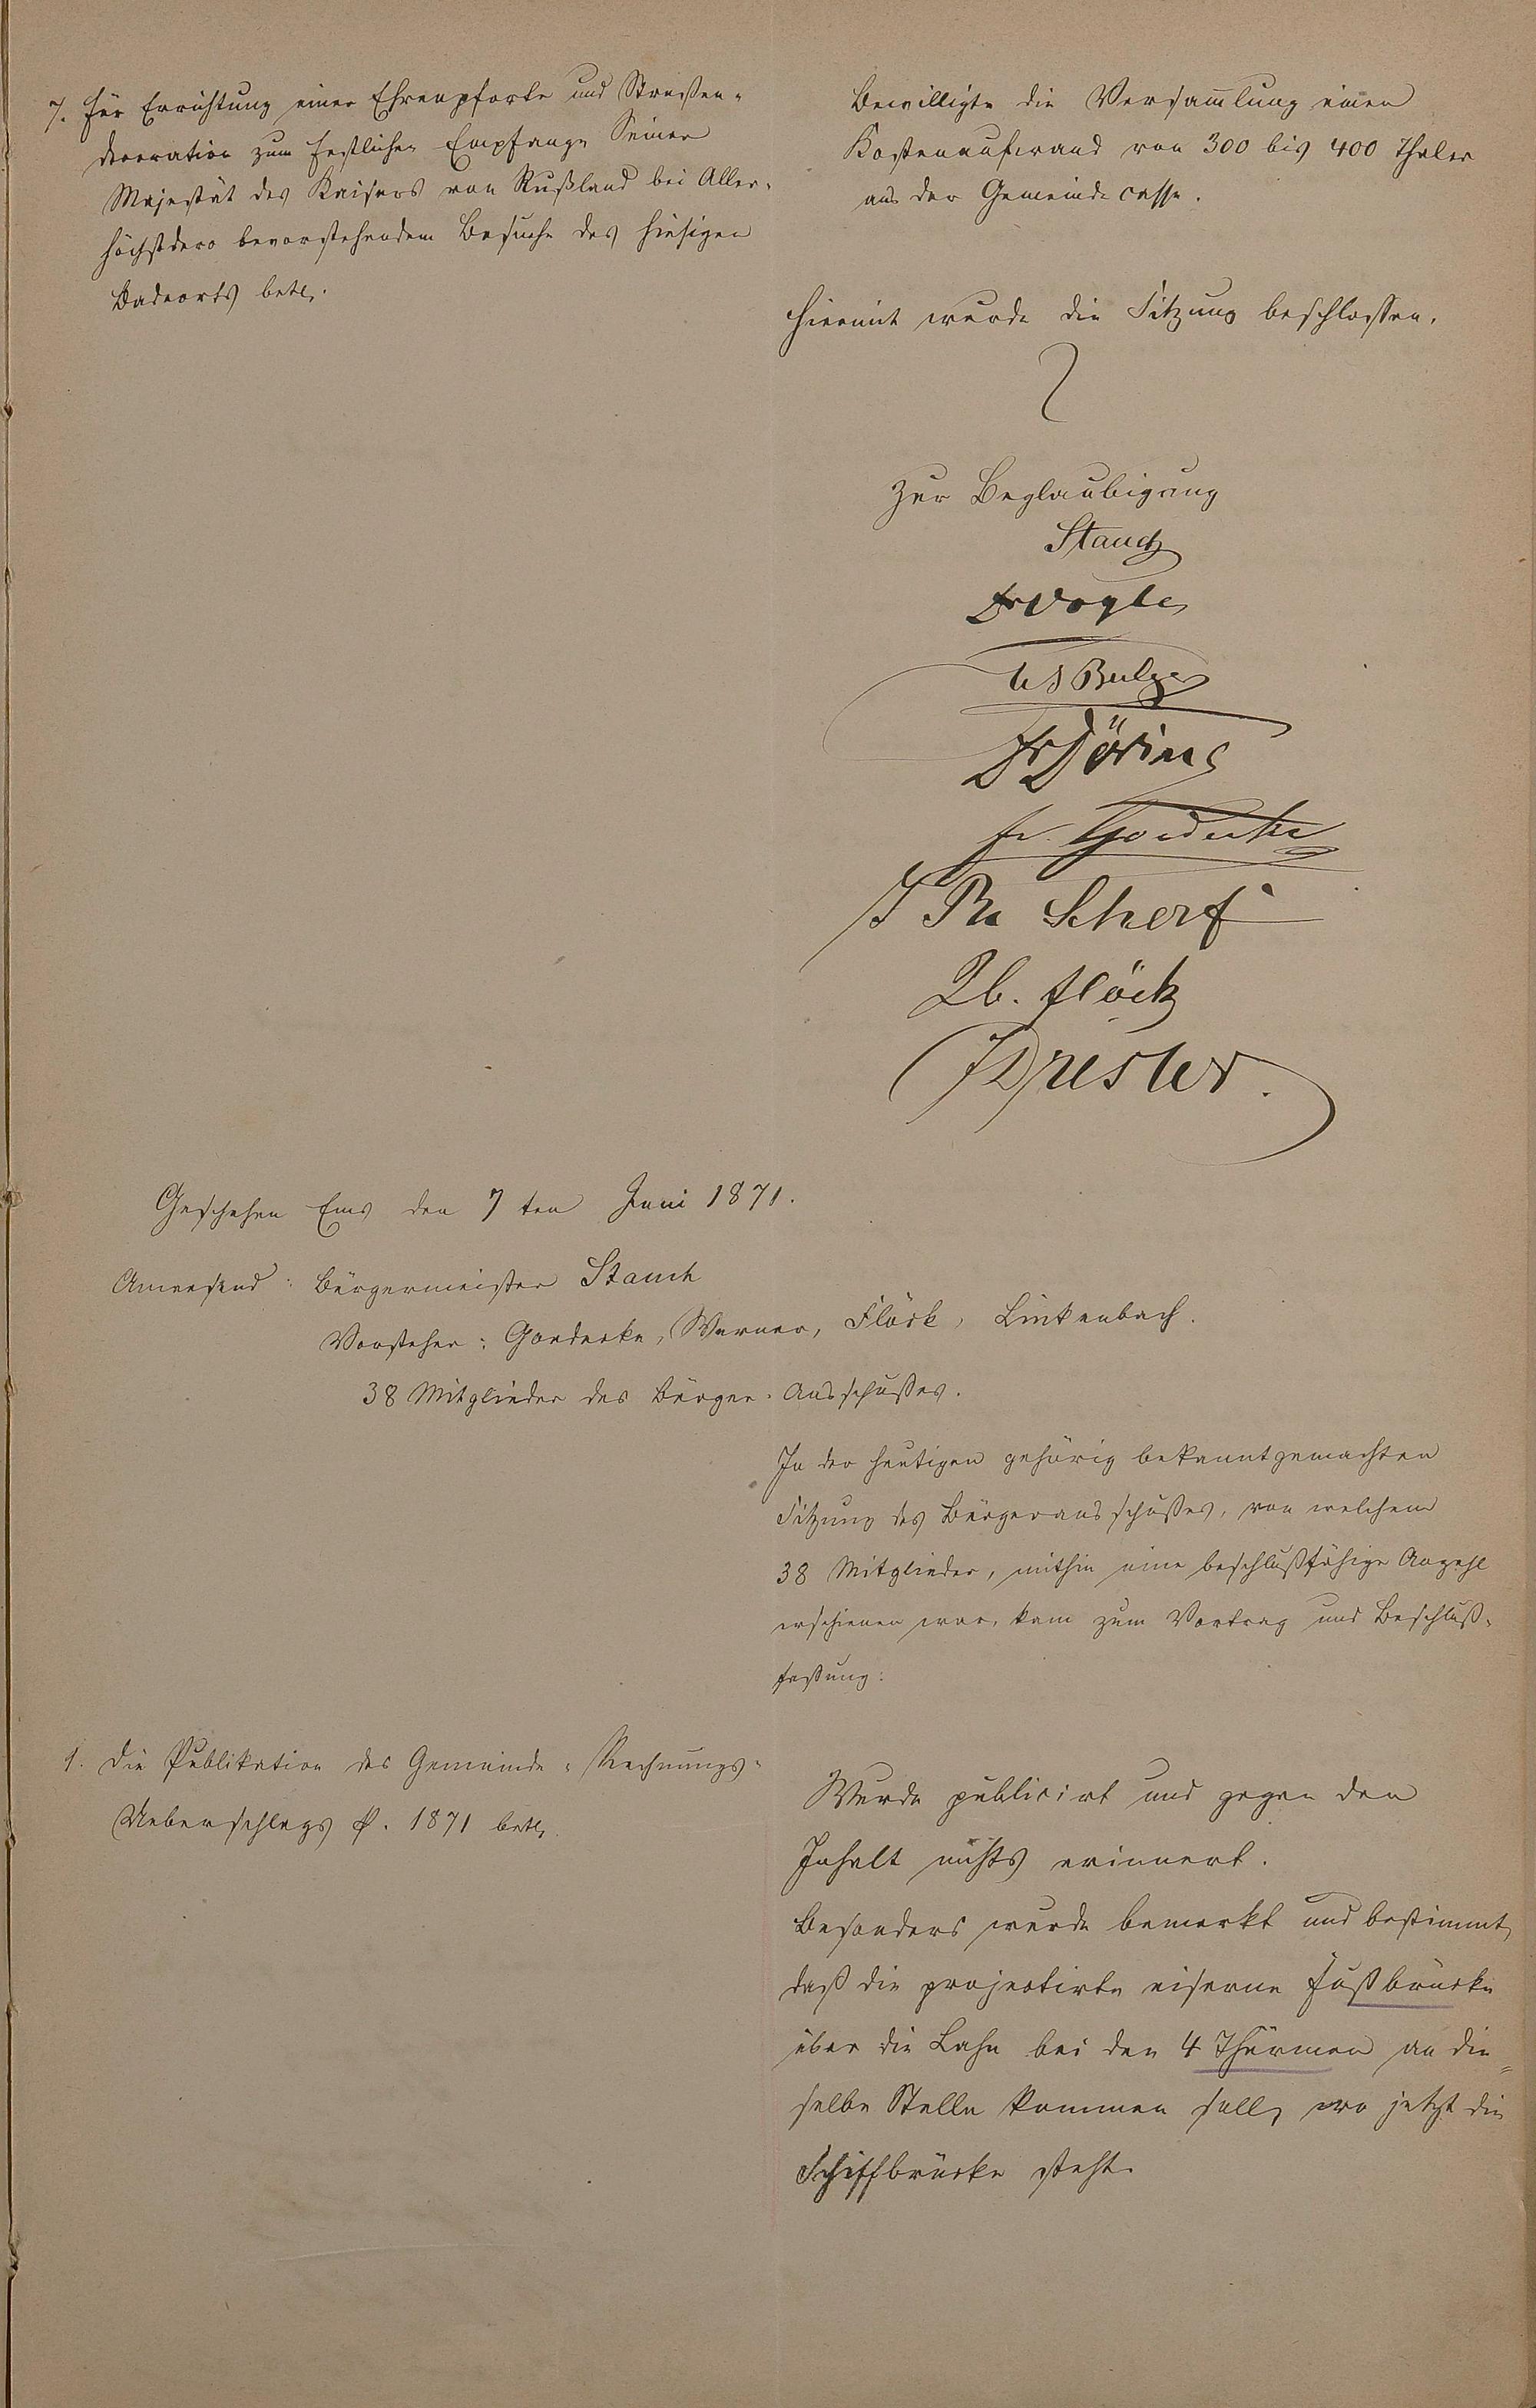 7. Für Errichtung einer Ehrenpforte und Straßen-
decoration zum festlichen Empfange Seiner
Majestät des Kaisers von Rußland bei Aller-
höchstdero bevorstehendem Besuche des hiesigen
Badeorts betr.
Bewilligte die Versam̄lung einen
Kostenaufwand von 300 bis 400 Thaler
aus der Gemeindecasse.
Hiermit wurde die Sitzung beschlossen.
Zur Beglaubigung
Stauch
Dr Vogler
Dr Döring
Fr. Goedecke
J Ph Scherf
Ph. Flöck
Geschehen Ems den 7 ten Juni 1871.
Anwesend: Bürgermeister Stauch
Vorsteher: Goedecke, Werner, Flöck, Linkenbach.
38 Mitglieder des Bürger-Ausschußes.
In der heutigen gehörig bekanntgemachten
Sitzung des Bürgerausschußes, von welchem
38 Mitglieder, mithin eine beschlußfähige Anzahl
erschienen war, kam zum Vortrag und Beschluß-
faßung:
1. Die Publikation des Gemeinde-Rechnungs-
Ueberschlags p. 1871 betr.
Wurde publicirt und gegen den
Inhalt nichts erinnert.
Besonders wurde bemerkt und bestimmt,
daß die projectirte eiserne Fußbrücke
über die Lahn bei den 4 Thürmen an die-
selbe Stelle kommen soll, wo jetzt die
Schiffbrücke steht.